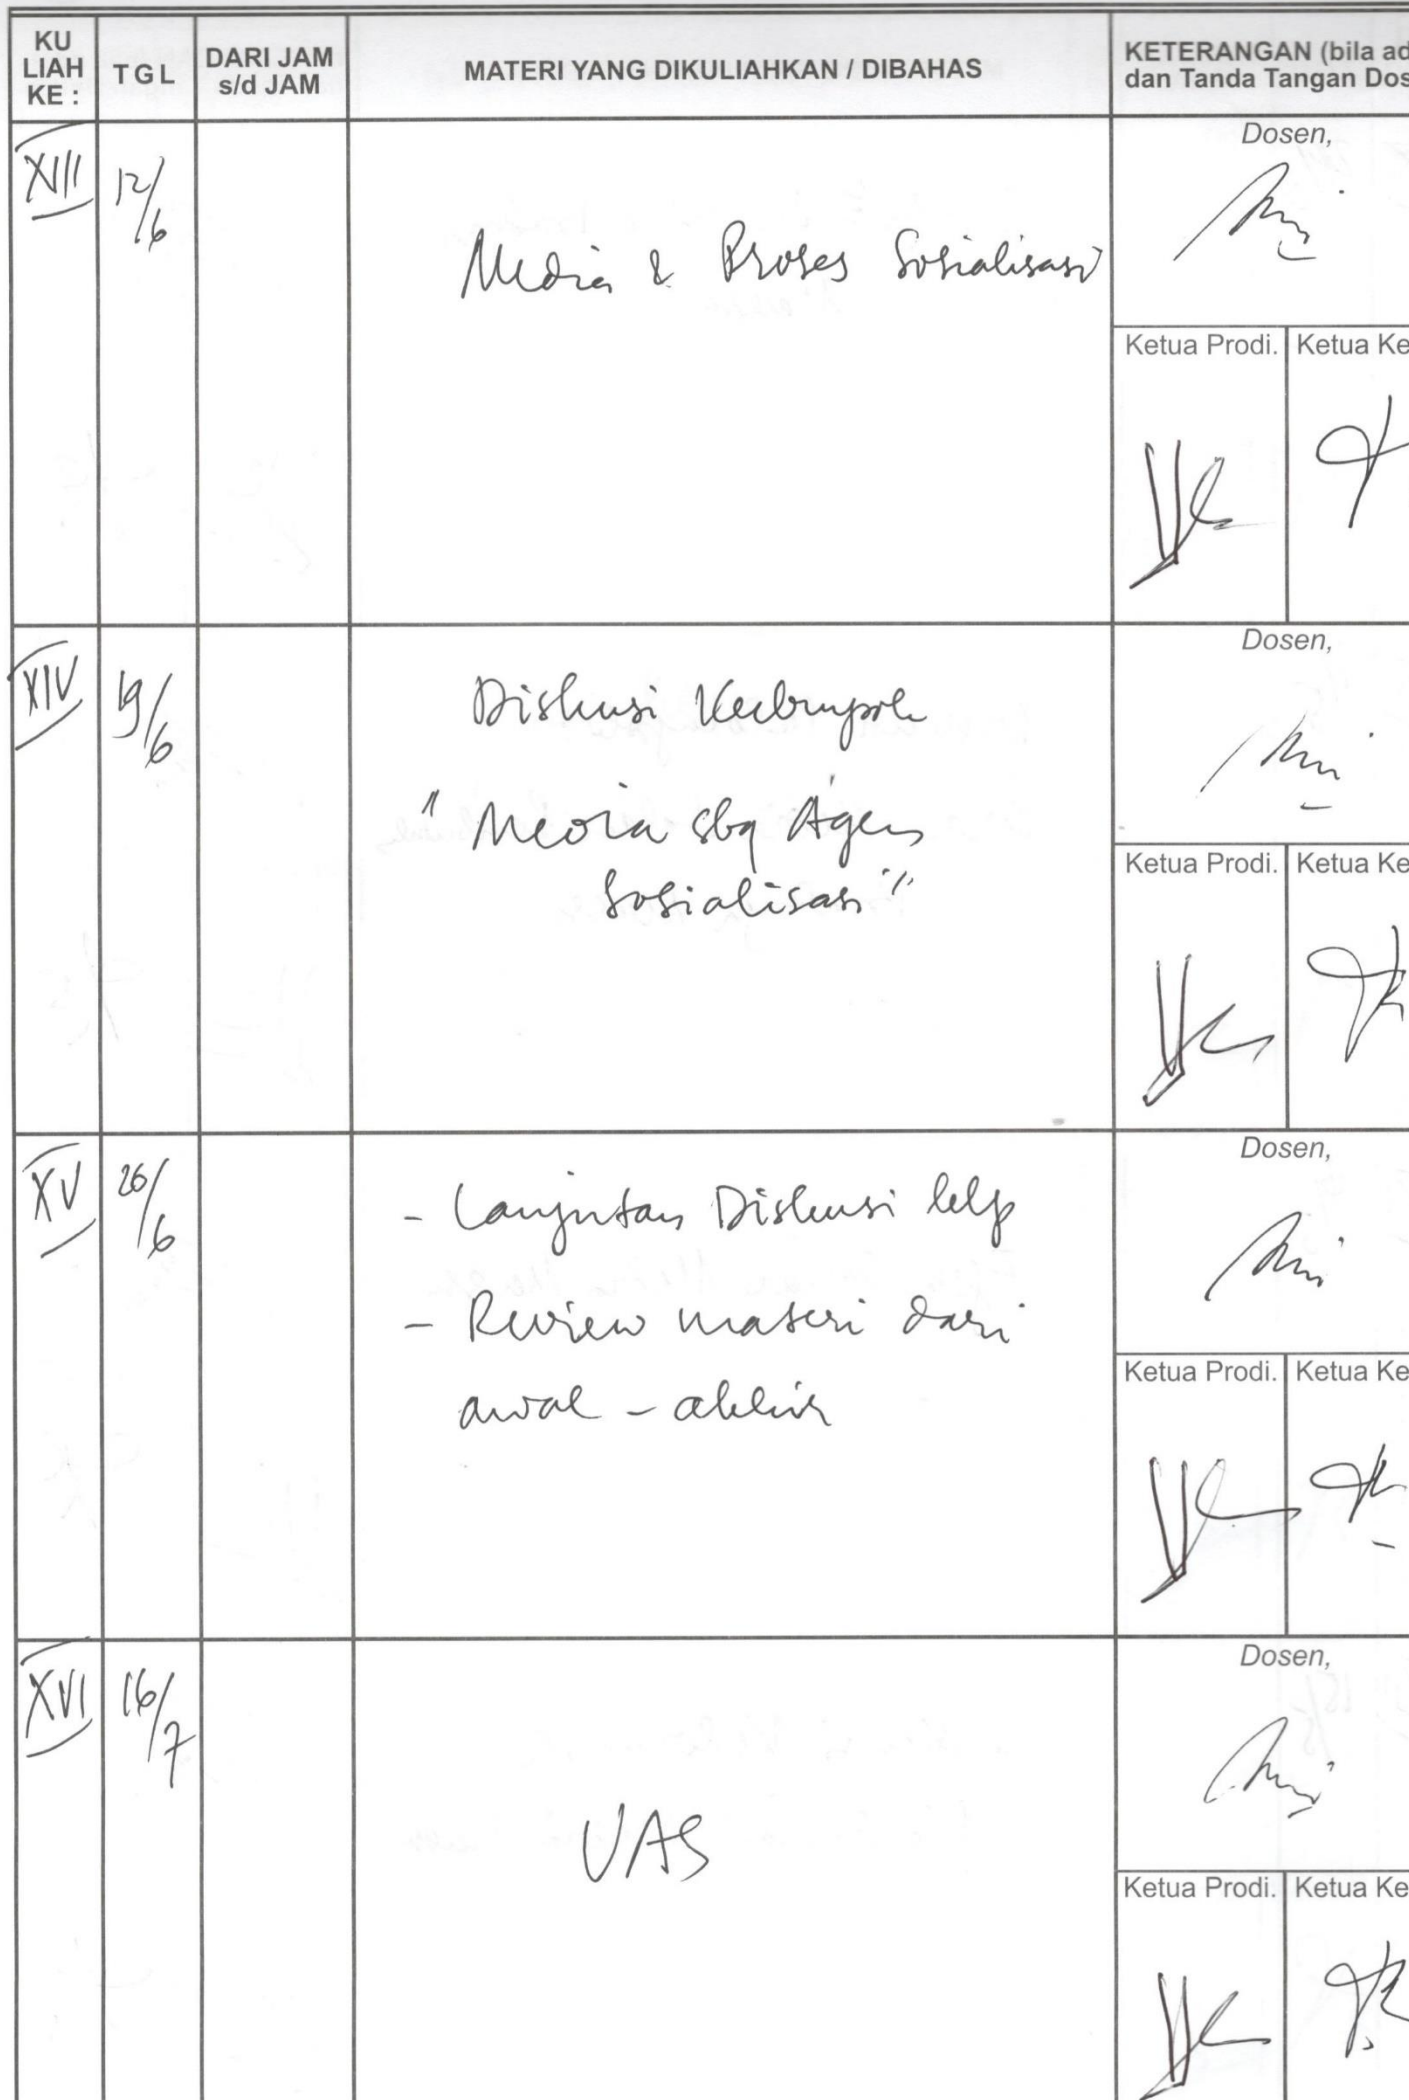 KU
LIAH
KE :
TGL
DARI JAM
s/d JAM
MATERI YANG DIKULIAHKAN / DIBAHAS
KETERANGAN (bila ad
dan Tanda Tangan Dos
XIII
12/6
Media & Proses Sosialisasi
Dosen,
Ketua Prodi.
Ketua Ke
XIV
19/6
Diskusi Kelompok
" Media sbg Agen
Sosialisasi "
Dosen,
Ketua Prodi.
Ketua Ke
XV
26/6
- Lanjutan Diskusi klp
- Review materi dari
awal - akhir
Dosen,
Ketua Prodi.
Ketua Ke
XVI
16/7
UAS
Dosen,
Ketua Prodi.
Ketua Ke